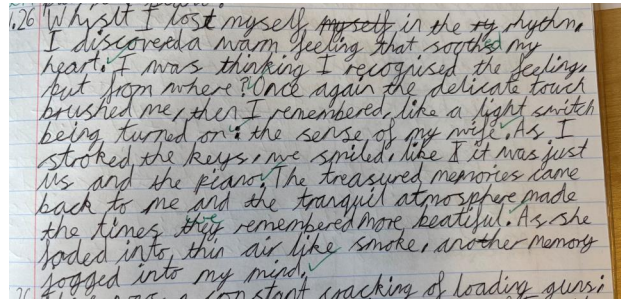 1.26 Whislt I lost myself myself in the ry rhythm.
I discovered a warm feeling that soothed my
heart. I was thinking I recognised the feeling.
but from where? Once again the delicate touch
brushed me, then I remembered, like a light switch
being turned on: the sense of my wife. As I
stroked the keys, we smiled, like I it was just
us and the piano. The treasured memories came
back to me and the tranquil atmosphere made
the times they we remembered more beatiful. As she
faded into, thin air like smoke, another memory
jogged into my mind.
constant cracking of loading guns: